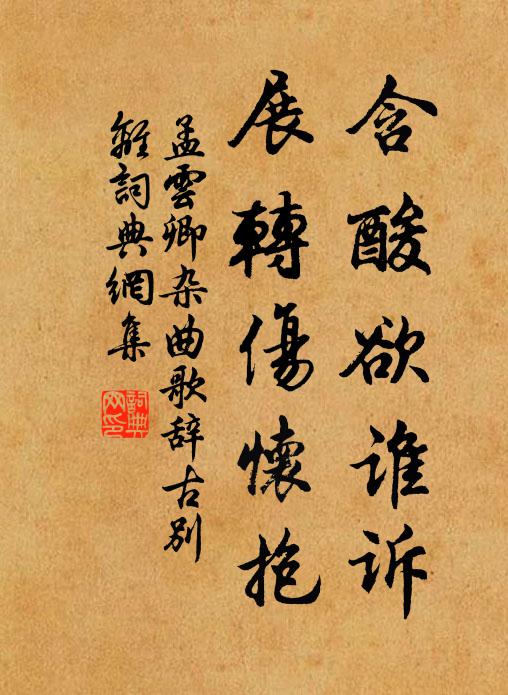 含酸欲谁诉
展轉傷懷抱
孟雲卿杂曲歌辞古别
離詞典網集
詞典
网印